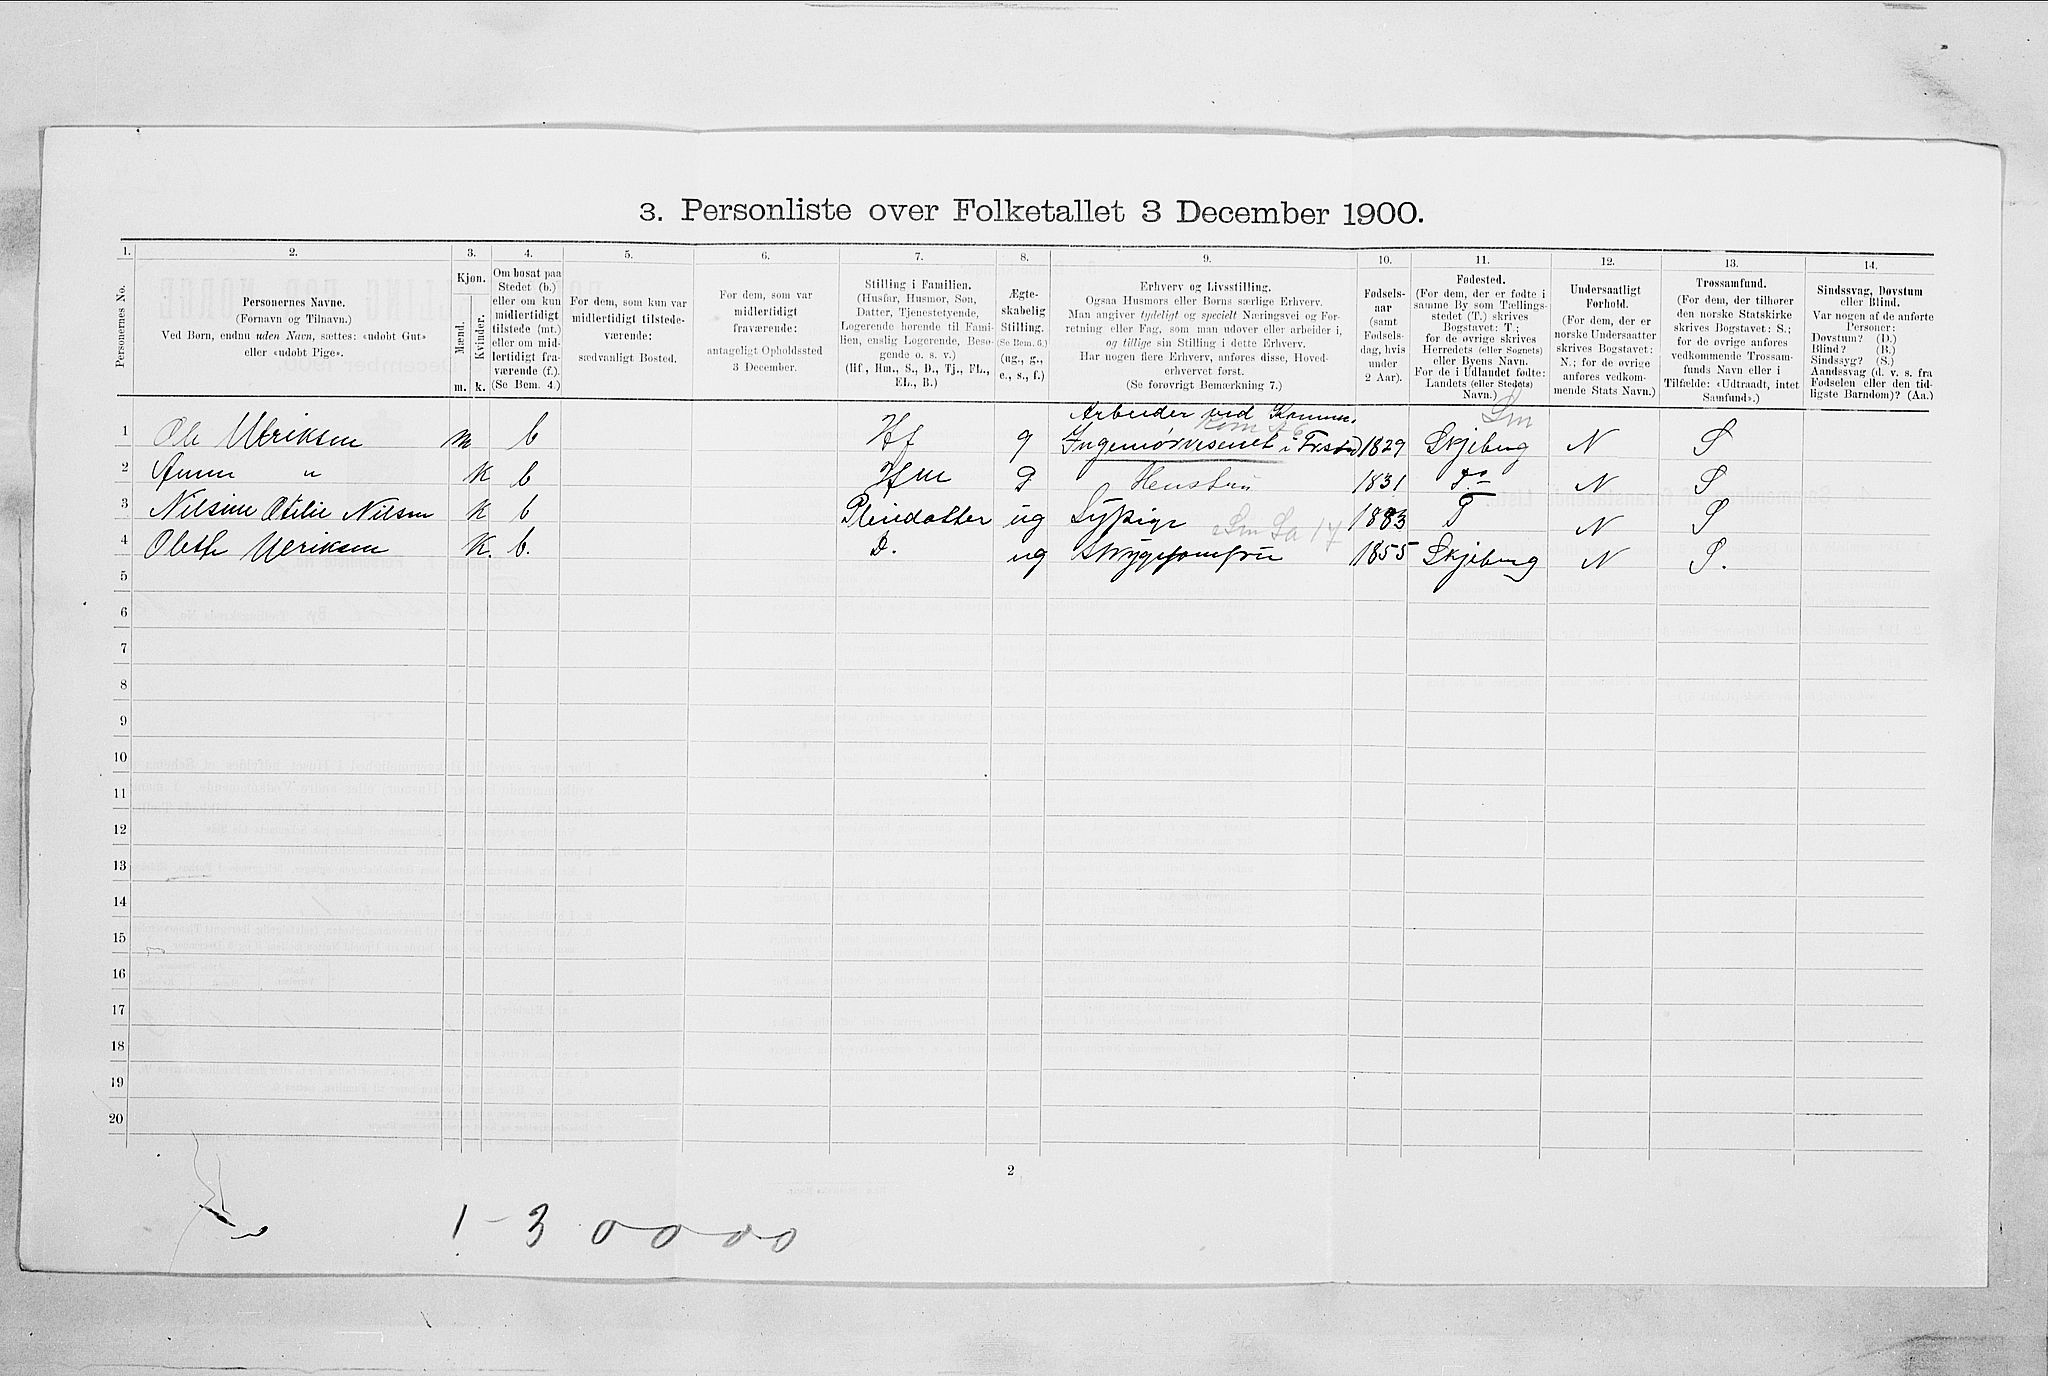 3. Personliste over Folketallet 3 December 1900.
1. 2. 3. 4. 5. 6. 7. 8. 9. 10. 11. 12. 13. 14.
Personernes No.
Personernes Navne.
(Fornavn og Tilnavn.)
Ved Børn, endnu uden Navn, sættes: «udøbt Gut»
eller «udøbt Pige».
Kjøn.
Mænd.
Kvinder.
m. k.
Om bosat paa
Stedet (b.)
eller om kun
midlertidigt
tilstede (mt.)
eller om mid-
lertidigt fra-
værende (f.).
(Se Bem. 4.)
For dem, som kun var
midlertidigt tilstede-
værende:
sædvanligt Bosted.
For dem, som var
midlertidigt
fraværende:
antageligt Opholdssted
3 December.
Stilling i Familien.
(Husfar, Husmor, Søn,
Datter, Tjenestetyende,
Logerende hørende til Fami-
lien, enslig Logerende, Besø-
gende o. s. v.)
(Hf., Hm., S., D., Tj., FL.,
EL., B.)
Ægte-
skabelig
Stilling.
(Se Bem. 6.)
(ug., g.,
e., s., f.)
Erhverv og Livsstilling.
Ogsaa Husmors eller Børns særlige Erhverv.
Man angiver tydeligt og specielt Næringsvei og For-
retning eller Fag, som man udøver eller arbeider i,
og tillige sin Stilling i dette Erhverv.
Har nogen flere Erhverv, anføres disse, Hoved-
erhvervet først.
(Se forøvrigt Bemærkning 7.)
Fødsels-
aar
(samt
Fødsels-
dag, hvis
under
2 Aar).
Fødested.
(For dem, der er fødte i
samme By som Tællings-
stedet (T.) skrives
Bogstavet: T.;
for de øvrige skrives
Herredets (eller Sognets)
eller Byens Navn.
For de i Udlandet fødte:
Landets (eller Stedets)
Navn.)
Undersaatligt
Forhold.
(For dem, der er
norske Undersaatter
skrives Bogstavet:
N.; for de øvrige
anføres vedkom-
mende Stats Navn.)
Trossamfund.
(For dem, der tilhører
den norske Statskirke
skrives Bogstavet: S.;
for de øvrige anføres
vedkommende Trossam-
funds Navn eller i
Tilfælde: «Udtraadt, intet
Samfund».)
Sindssvag, Døvstum
eller Blind.
Var nogen af de anførte
Personer:
Døvstum? (D.)
Blind? (B.)
Sindssyg? (S.)
Aandssvag (d. v. s. fra
Fødselen eller den tid-
ligste Barndom)? (Aa.)
Arbeider ved Kommu.
1 Ole Ulriksen m b Hf g Ingeniørvesenet i Frstad 1829 Skjeberg N S
2 Anne " k b Hm g Hustru 1831 do N S
3 Nilsine Otilie Nilsen k b Pleiedatter ug Sypige 1883 T N S
4 Oleth Ulriksen k. b. D. ug Strygejomfru 1855 Skjeberg N S.
5
6
7
8
9
10
11
12
13
14
15
16
17
18
19
20
2
1-3 0000